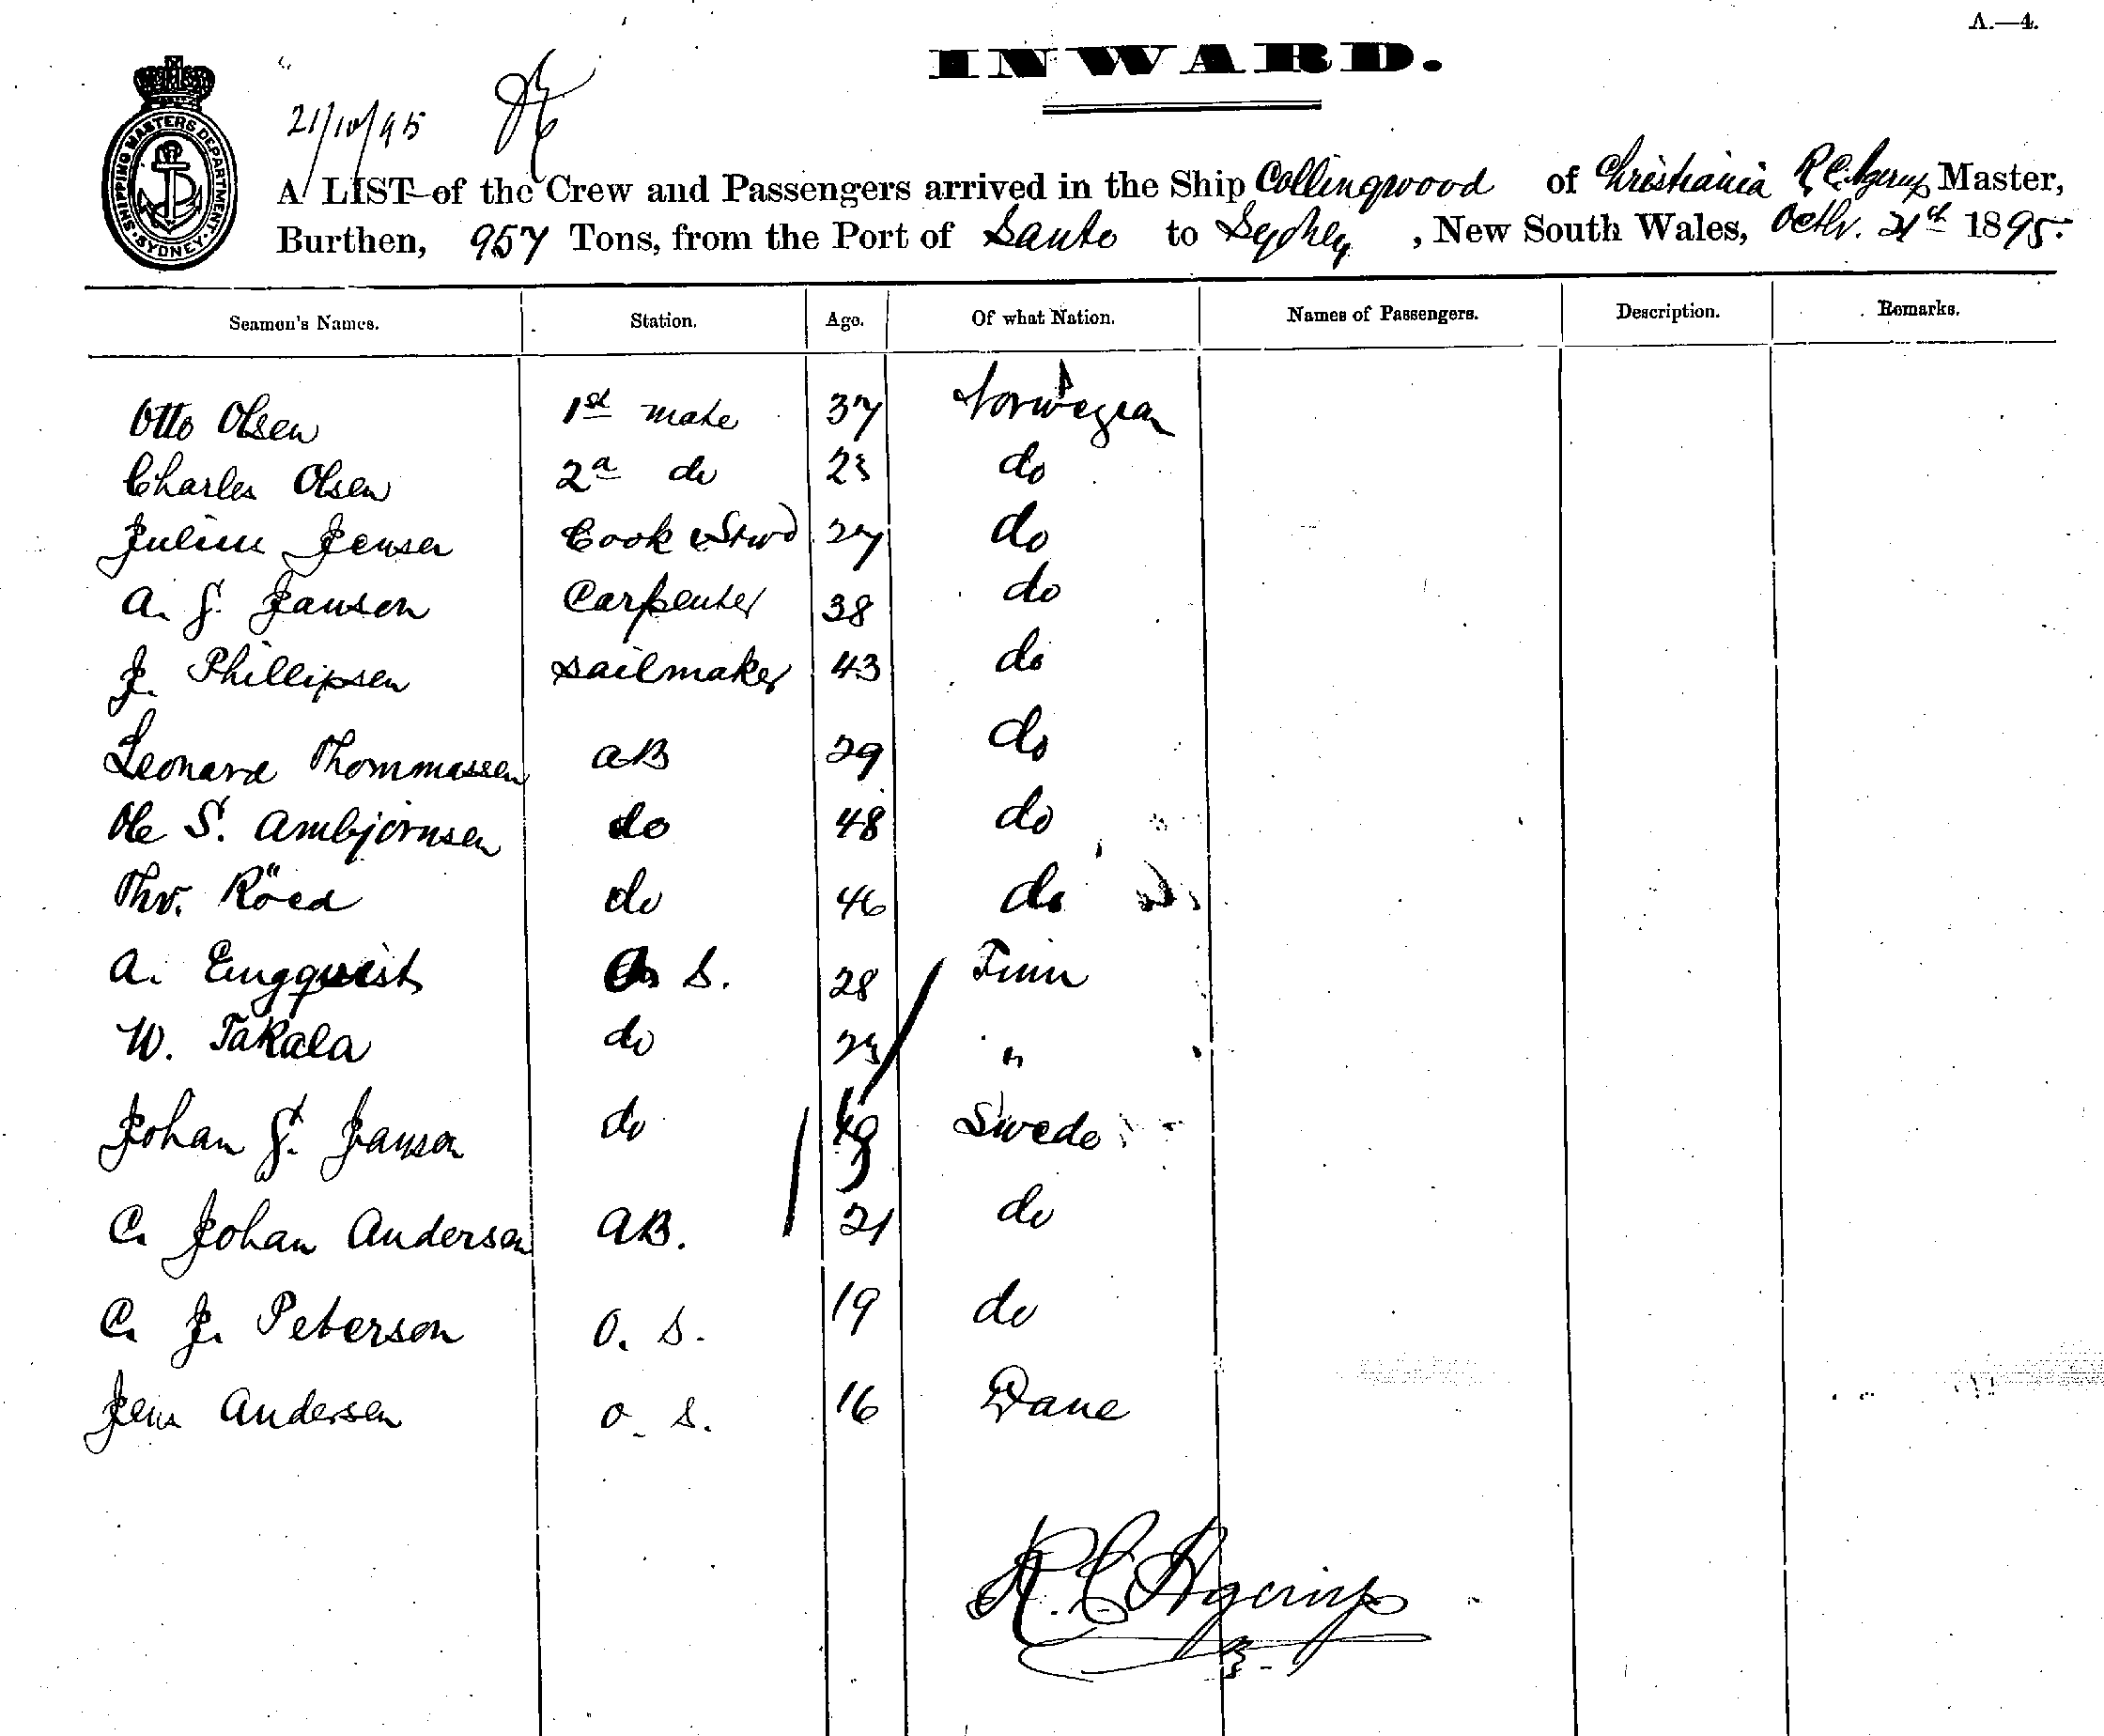 A.—4.
INWARD.
SHIPPING MASTERS DEPARTMENT · SYDNEY ·
21/10/95
A LIST of the Crew and Passengers arrived in the Ship Collingwood of Christiania R. C. Agerup Master,
Burthen, 957 Tons, from the Port of Santo to Sydney, New South Wales, Octbr. 21st 1895.
Seamen's Names. Station. Age. Of what Nation. Names of Passengers. Description. Remarks.
Otto Olsen 1st mate 37 Norwegian
Charles Olsen 2d do 23 do
Julius Jensen Cook & Stwd 27 do
A. G. Janson Carpenter 38 do
J. Phillipsen Sailmaker 43 do
Leonard Thommassen AB 29 do
Ole S. Ambjörnsen do 48 do
Thv. Röed do 46 do
A. Engquist S. 28 Finn
W. Takala do 23 "
Johan G. Janson do Swede
C. Johan Andersen AB. 21 do
C. J. Peterson O. S. 19 do
Jens Andersen O. S. 16 Dane
R. C. Agerup